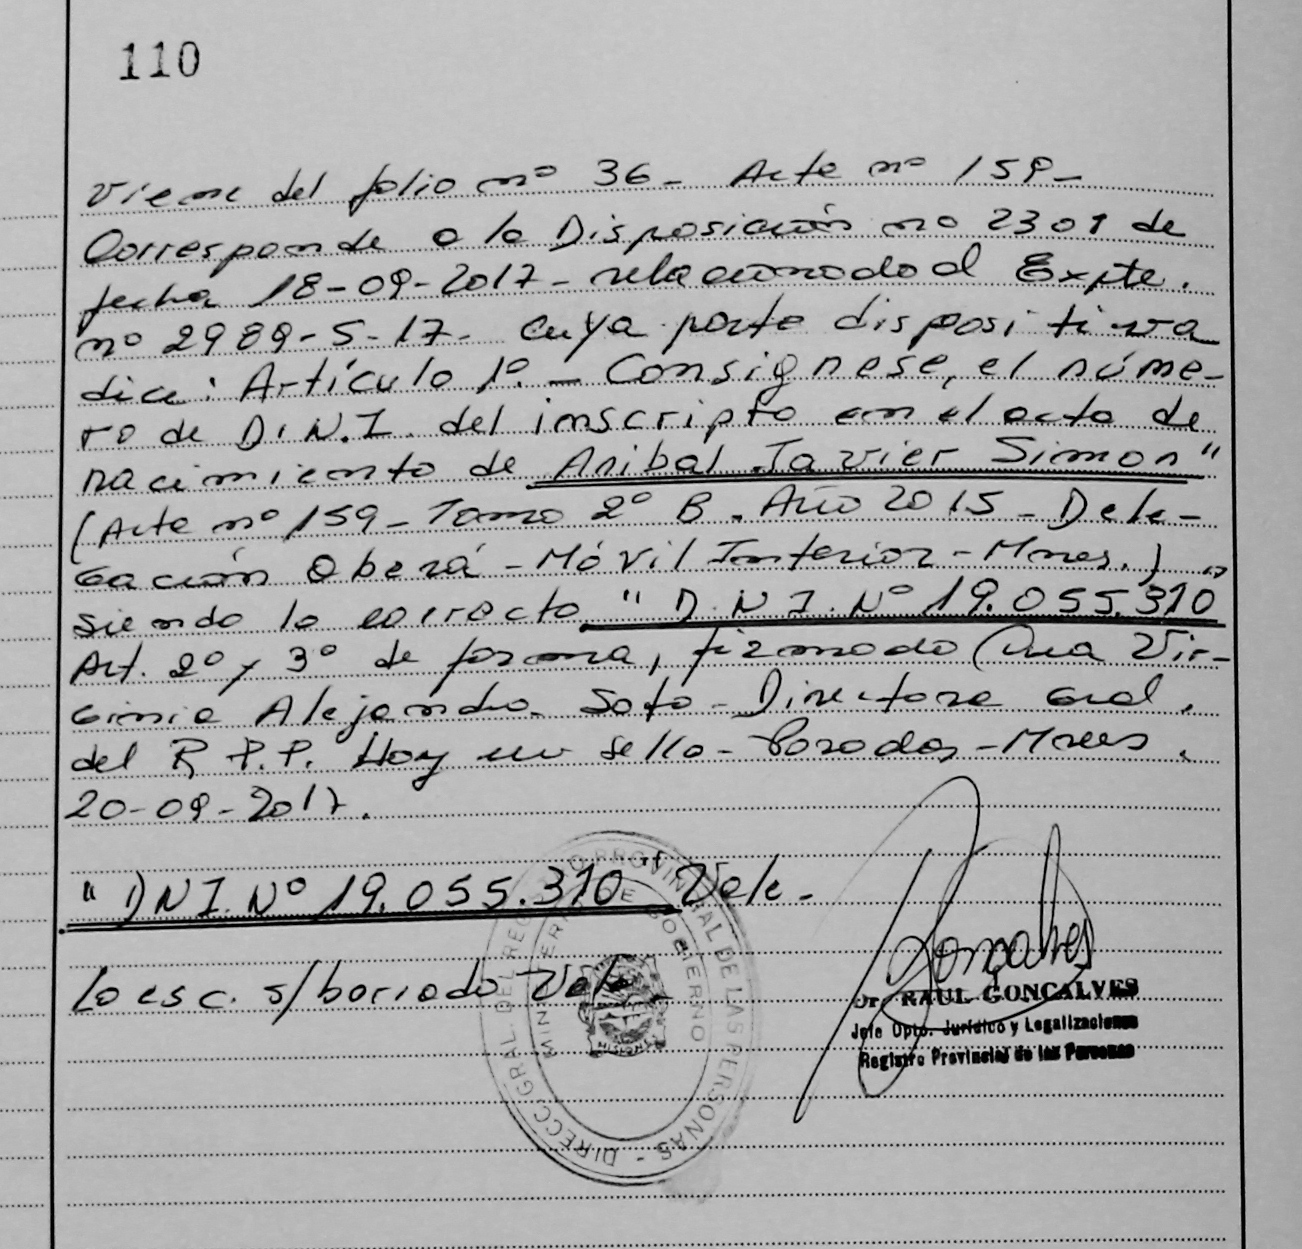 110
Viene del folio nº 36 - Acta nº 159 -
Corresponde a la Disposición nº 2301 de
fecha 18-09-2017 - relacionado al Expte.
nº 2989-S-17 - cuya parte dispositiva
dice: Artículo 1º. - Consignese, el núme-
ro de D.N.I. del inscripto en el acta de
nacimiento de Anibal Javier Simon"
(Acta nº 159 - Tomo 2º B. Año 2015 - Dele-
gación Oberá - Móvil Interior - Mnes.)
siendo lo correcto "D.N.I. Nº 19.055.310"
Art. 2º y 3º de forma, firmado (Ana Vir-
ginia Alejandra Soto - Directora Gral.
del R.P.P. Hay un sello - Posadas - Mnes.
20-09-2017.
"DNI. Nº 19.055.310" Vale -
Lo esc. s/ borrado Vale
DIRECC. GRAL. DEL REGISTRO PROVINCIAL DE LAS PERSONAS -
MINISTERIO DE GOBIERNO
MISIONES
Dr. RAUL GONCALVES
Jefe Dpto. Jurídico y Legalizaciones
Registro Provincial de las Personas